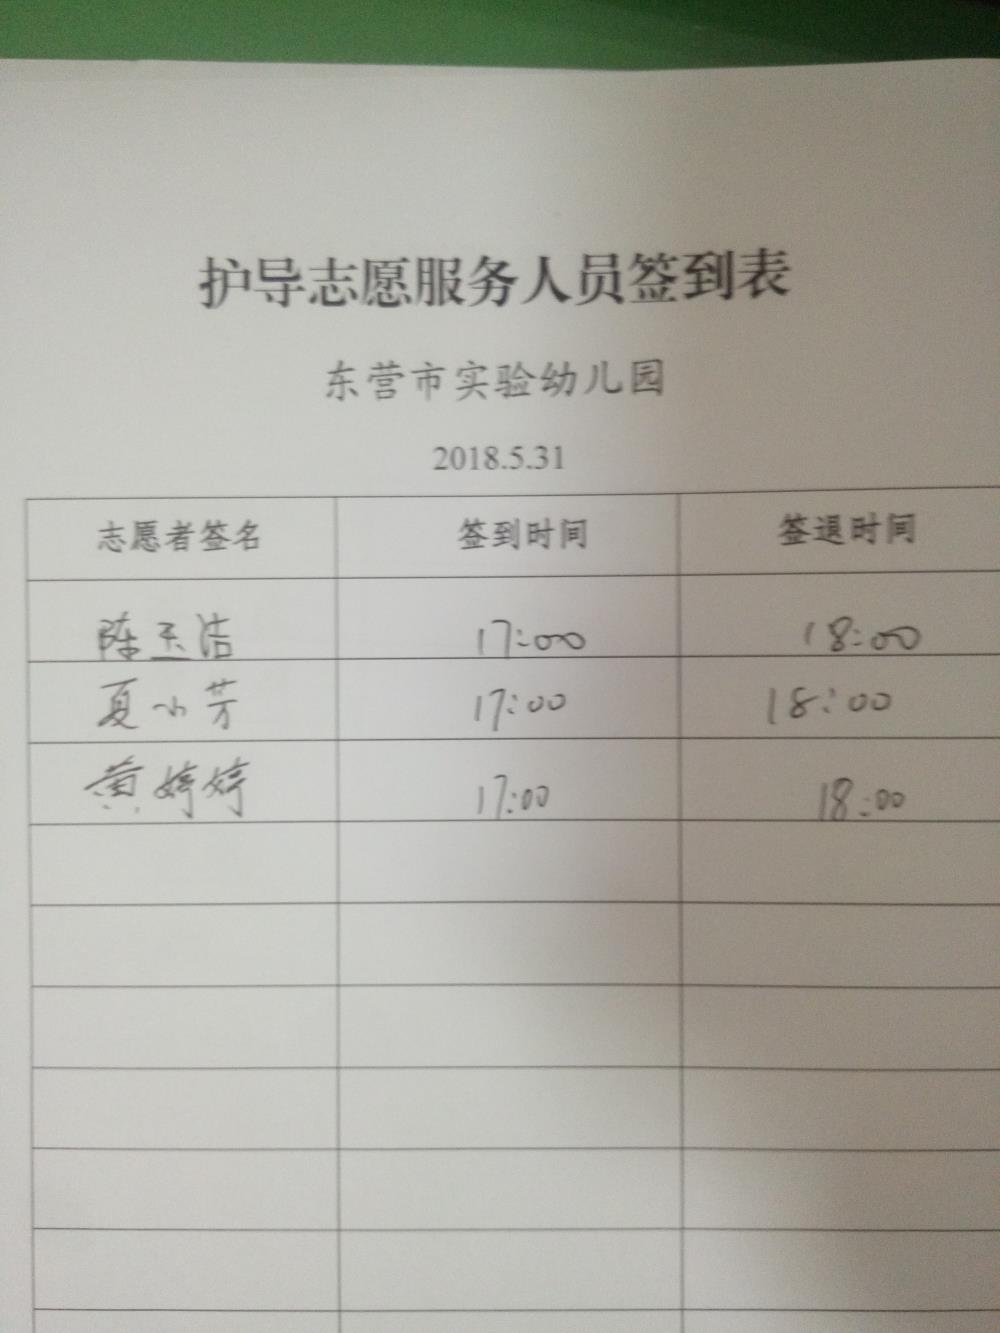 护导志愿服务人员签到表
东营市实验幼儿园
2018.5.31
志愿者签名 签到时间 签退时间
陈玉洁 17:00 18:00
夏小芳 17:00 18:00
黄婷婷 17:00 18:00